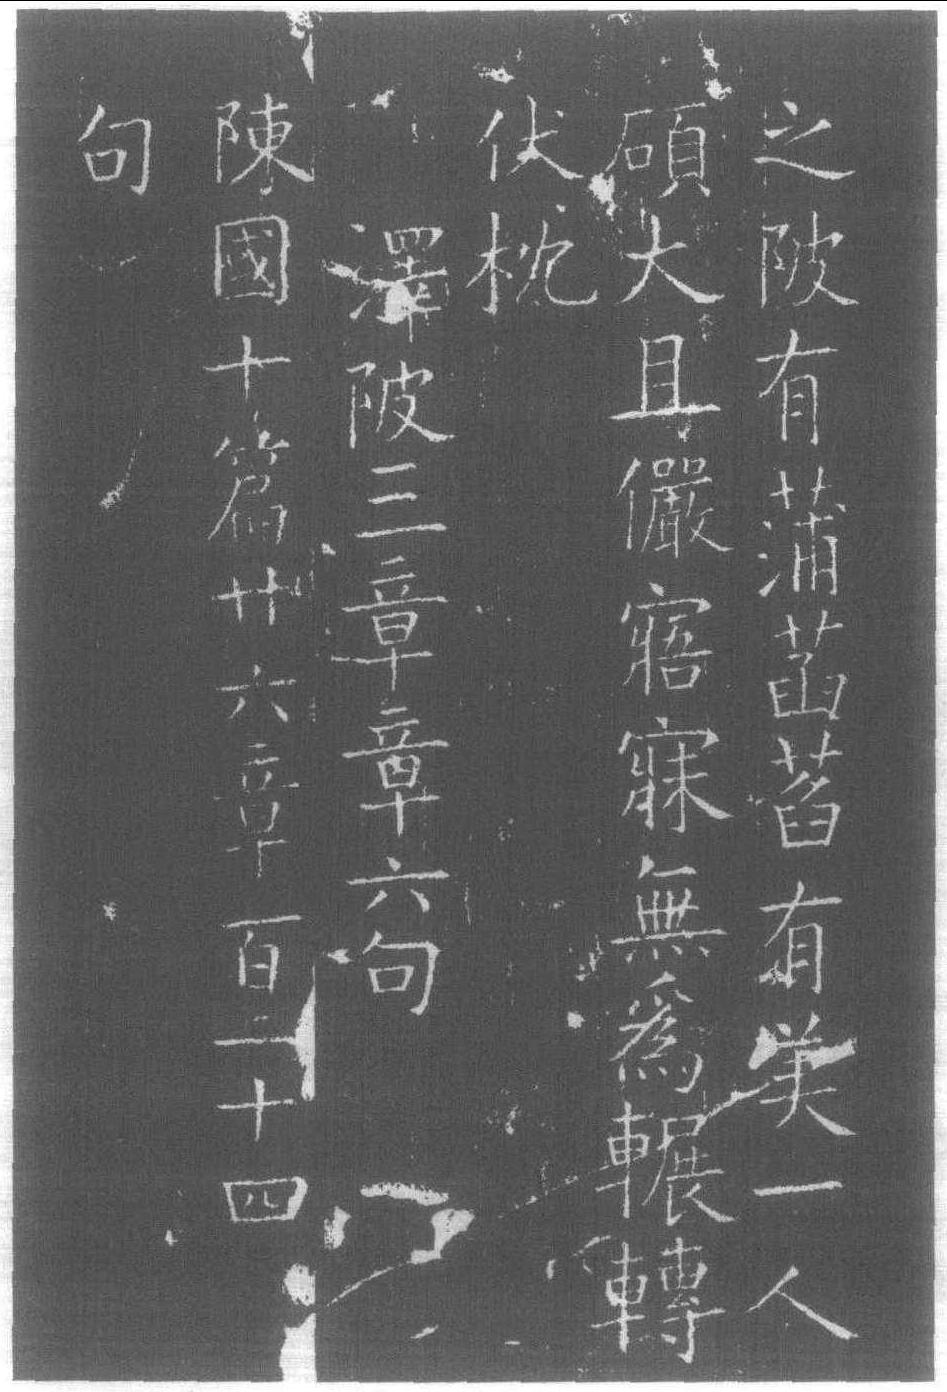 之陂有蒲菡萏有美一人
碩大且儼寤寐無爲輾轉
伏枕
澤陂三章章六句
陳國十篇廿六章百二十四
句